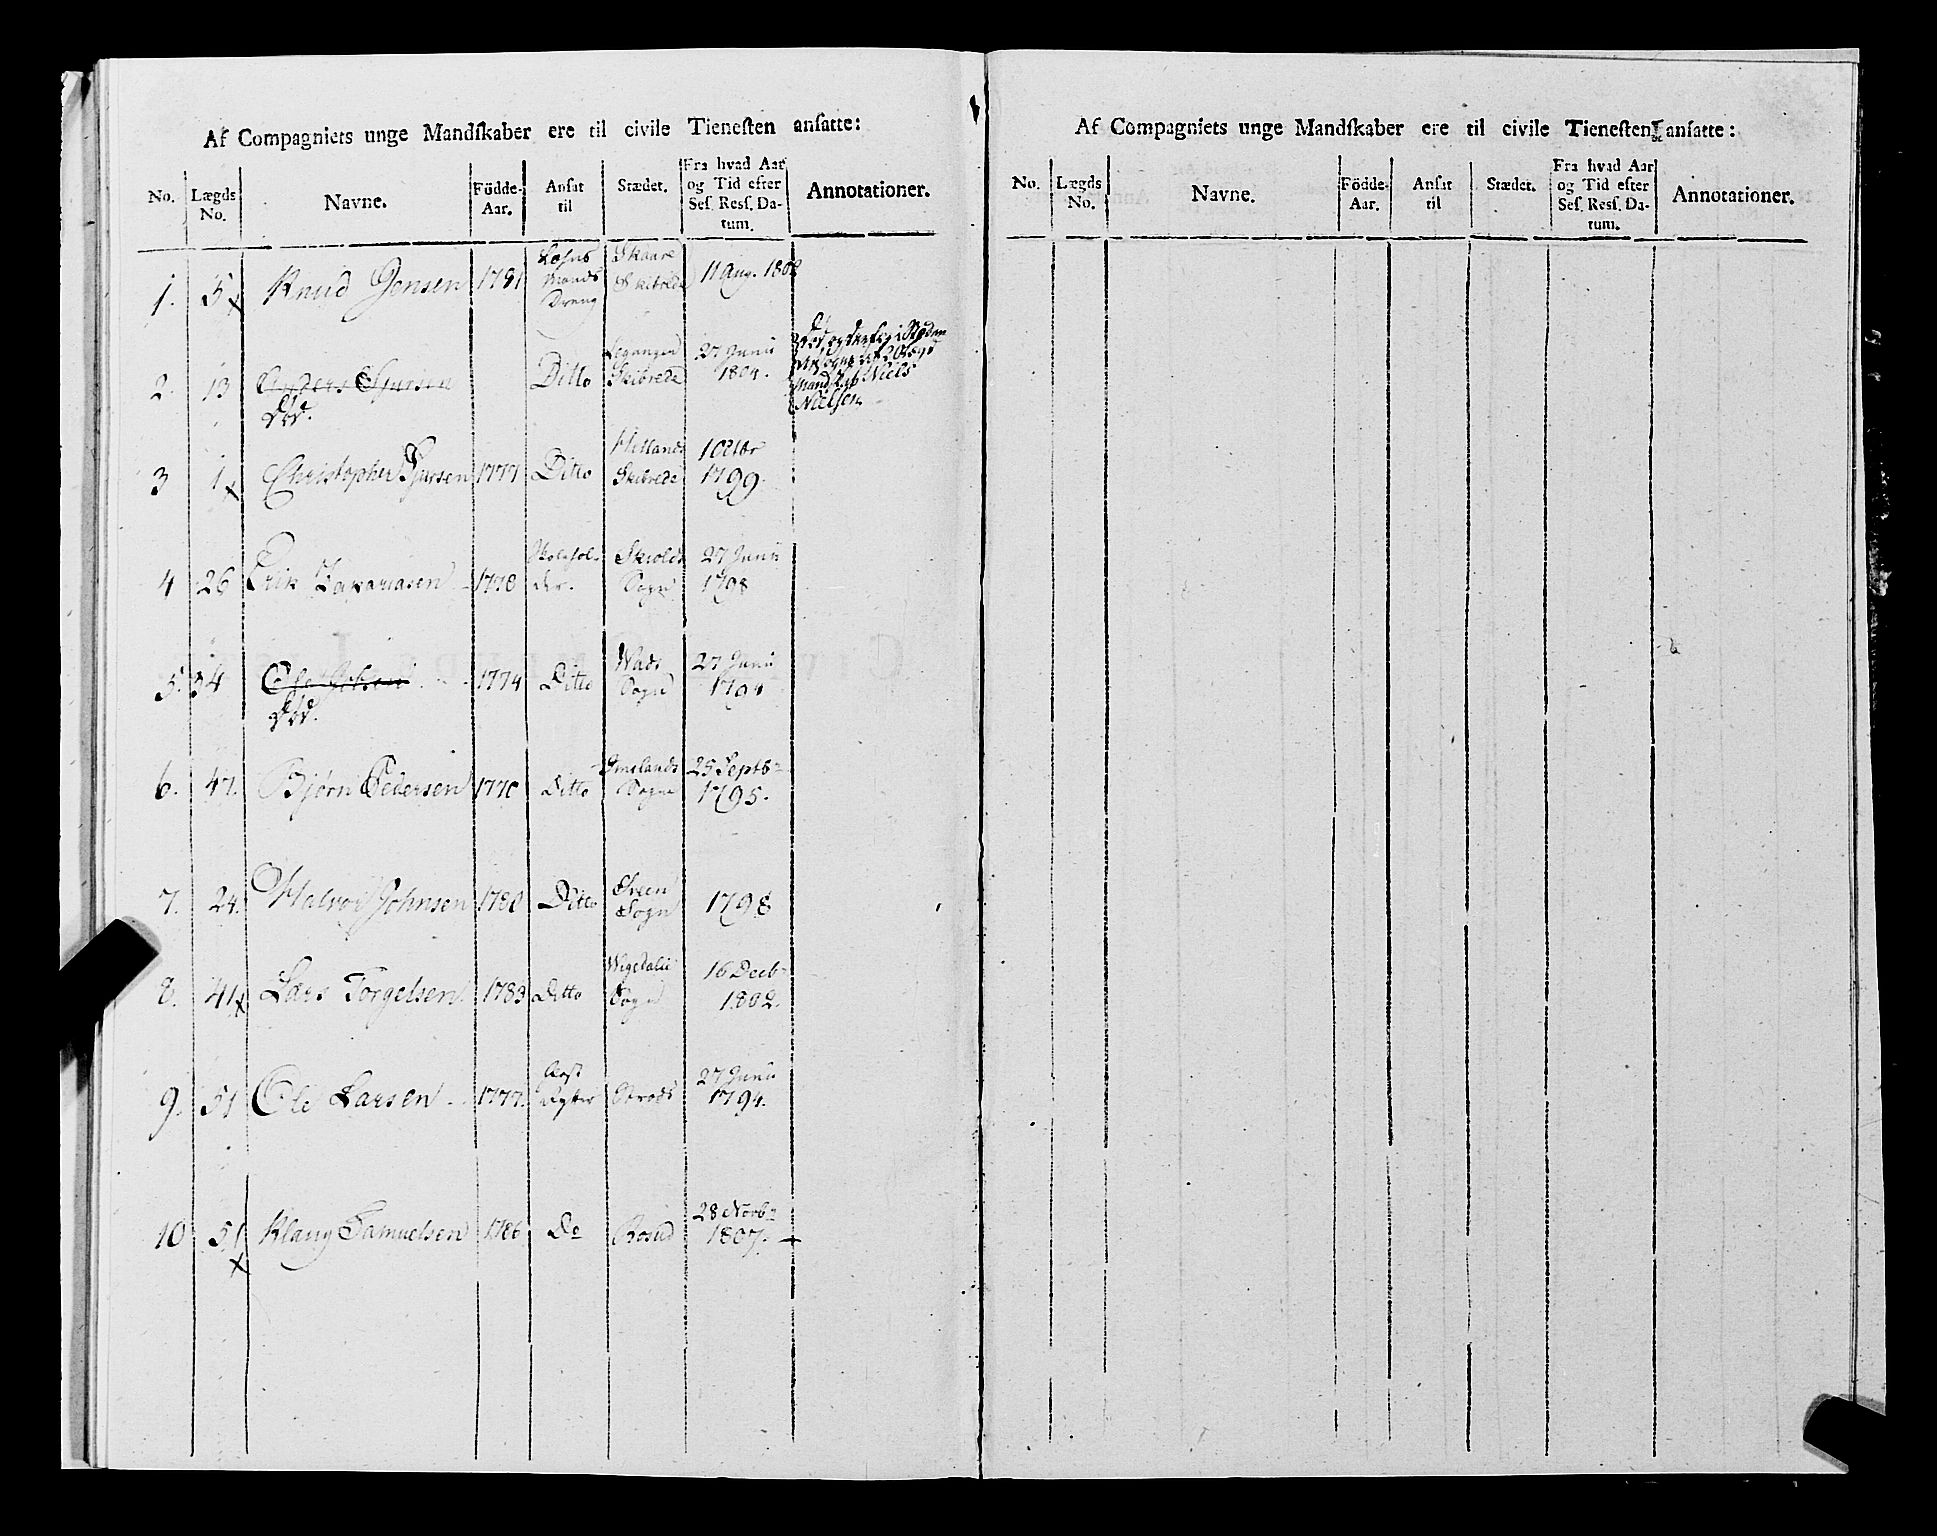 Af Compagniets unge Mandſkaber ere til civile Tieneſten anſatte:
No. Lægds No. Navne. Födde-Aar. Anſat til Stædet. Fra hvad Aar og Tid efter Seſ. Reſſ. Datum. Annotationer.
1. 5 Knud Jensen 1781 Losus Mands Dreng Skaare Skibrede 11 Aug. 1802
2. 13 Anders Sjursen Ditto Skibrede 27 Junii 1804.
Død.
Død og
Mandskab Niels
Nielsen
3 1 Christopher Sjursen 1777 Ditto Hetlands Skibrede 1 Octbr 1799.
4 26 Erik Zakariasen 1778 Skolehol-der. Skiolds Sogn 27 Junii 1798
5. 34 Ole 1774 Ditto Wads Sogn 27 Junii 1794
Død.
6. 47. Bjørn Pedersen 1770 Ditto Imslands Sogn 25 Septb 1795.
7. 24. Halvor Johnsen 1780 Ditto Øreen Sogn 1798
8. 41 Lars Torgelsen 1783 Ditto Wigedals Sogn 16 Decb 1802.
9. 51 Ole Larsen 1777. Post 27 Junii 1794.
10 51 Klaug Samuelsen 1786 Do 28 Novbr 1807.
Af Compagniets unge Mandſkaber ere til civile Tieneſten anſatte:
No. Lægds No. Navne. Födde-Aar. Anſat til Stædet. Fra hvad Aar og Tid efter Seſ. Reſſ. Datum. Annotationer.